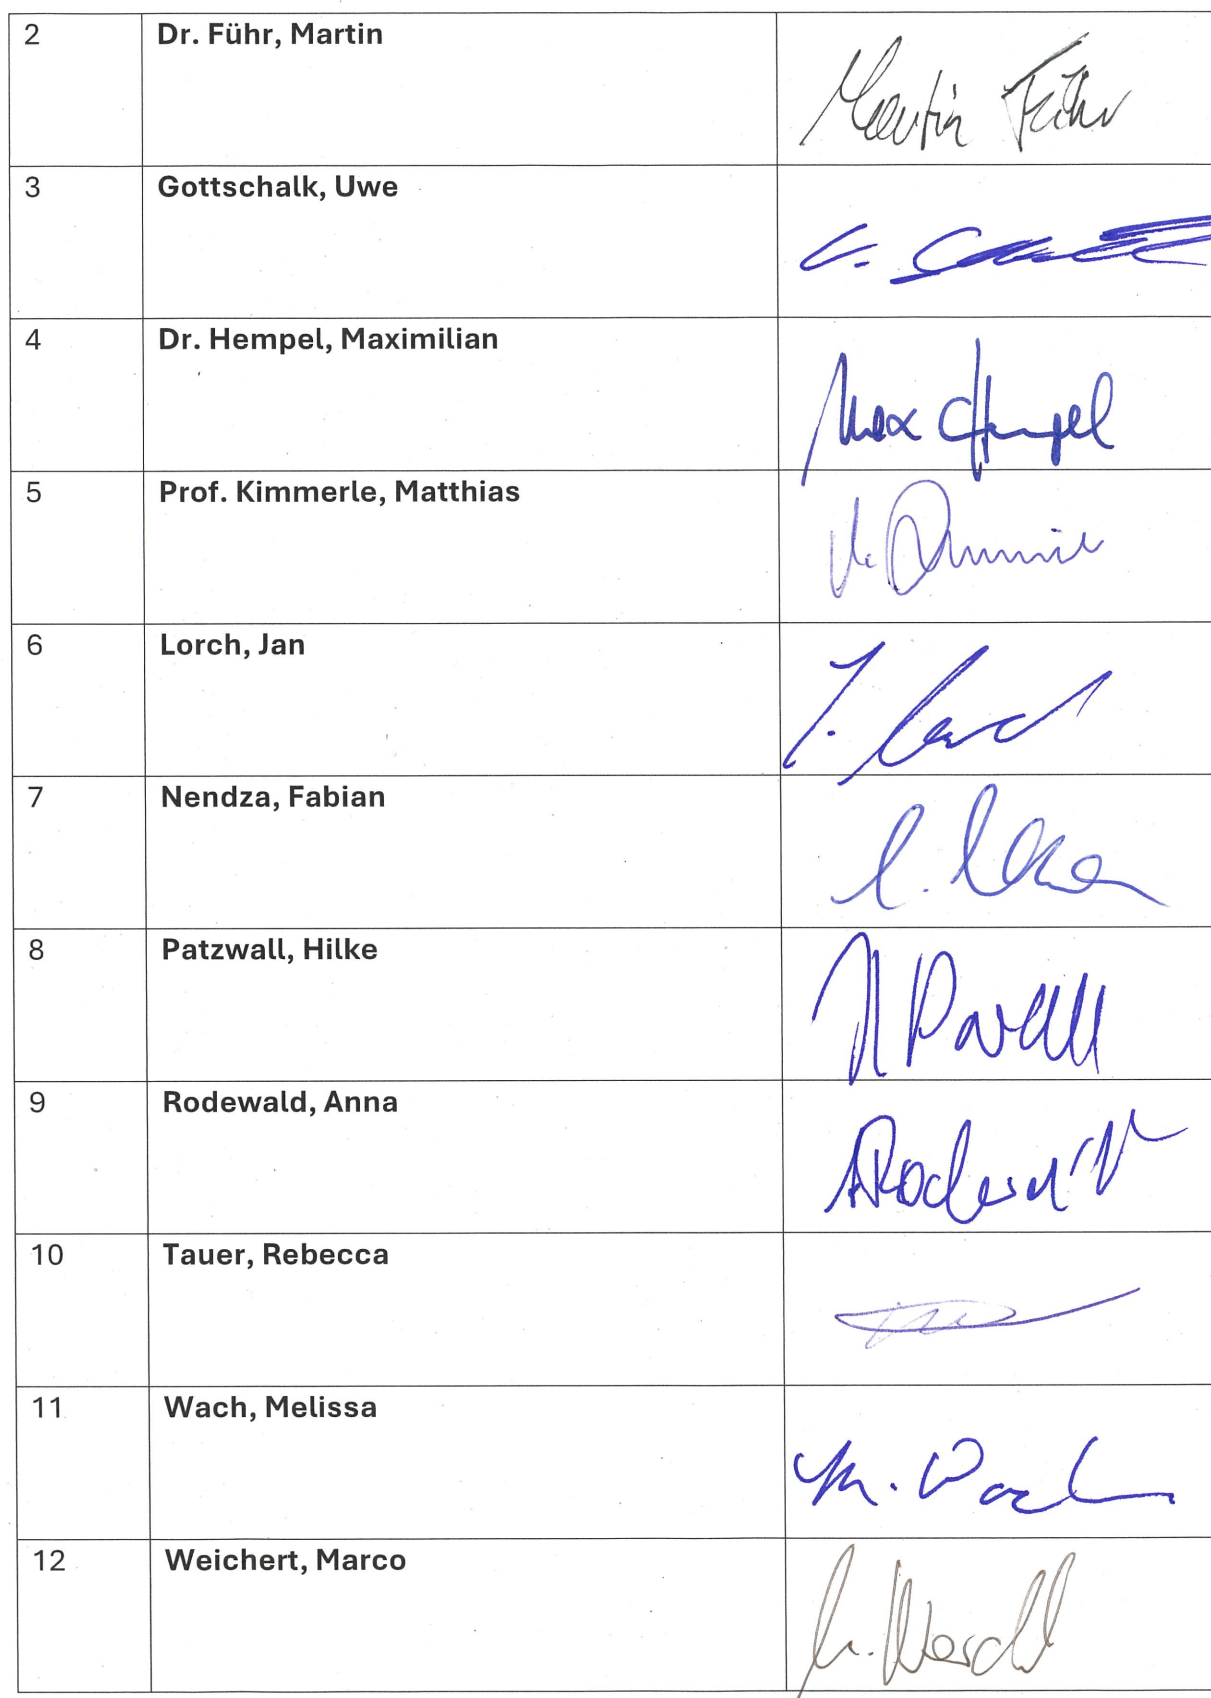 2 Dr. Führ, Martin Martin Führ
3 Gottschalk, Uwe
4 Dr. Hempel, Maximilian Max Hempel
5 Prof. Kimmerle, Matthias
6 Lorch, Jan J. Lorch
7 Nendza, Fabian
8 Patzwall, Hilke
9 Rodewald, Anna ARodewald
10 Tauer, Rebecca
11 Wach, Melissa M. Wach
12 Weichert, Marco